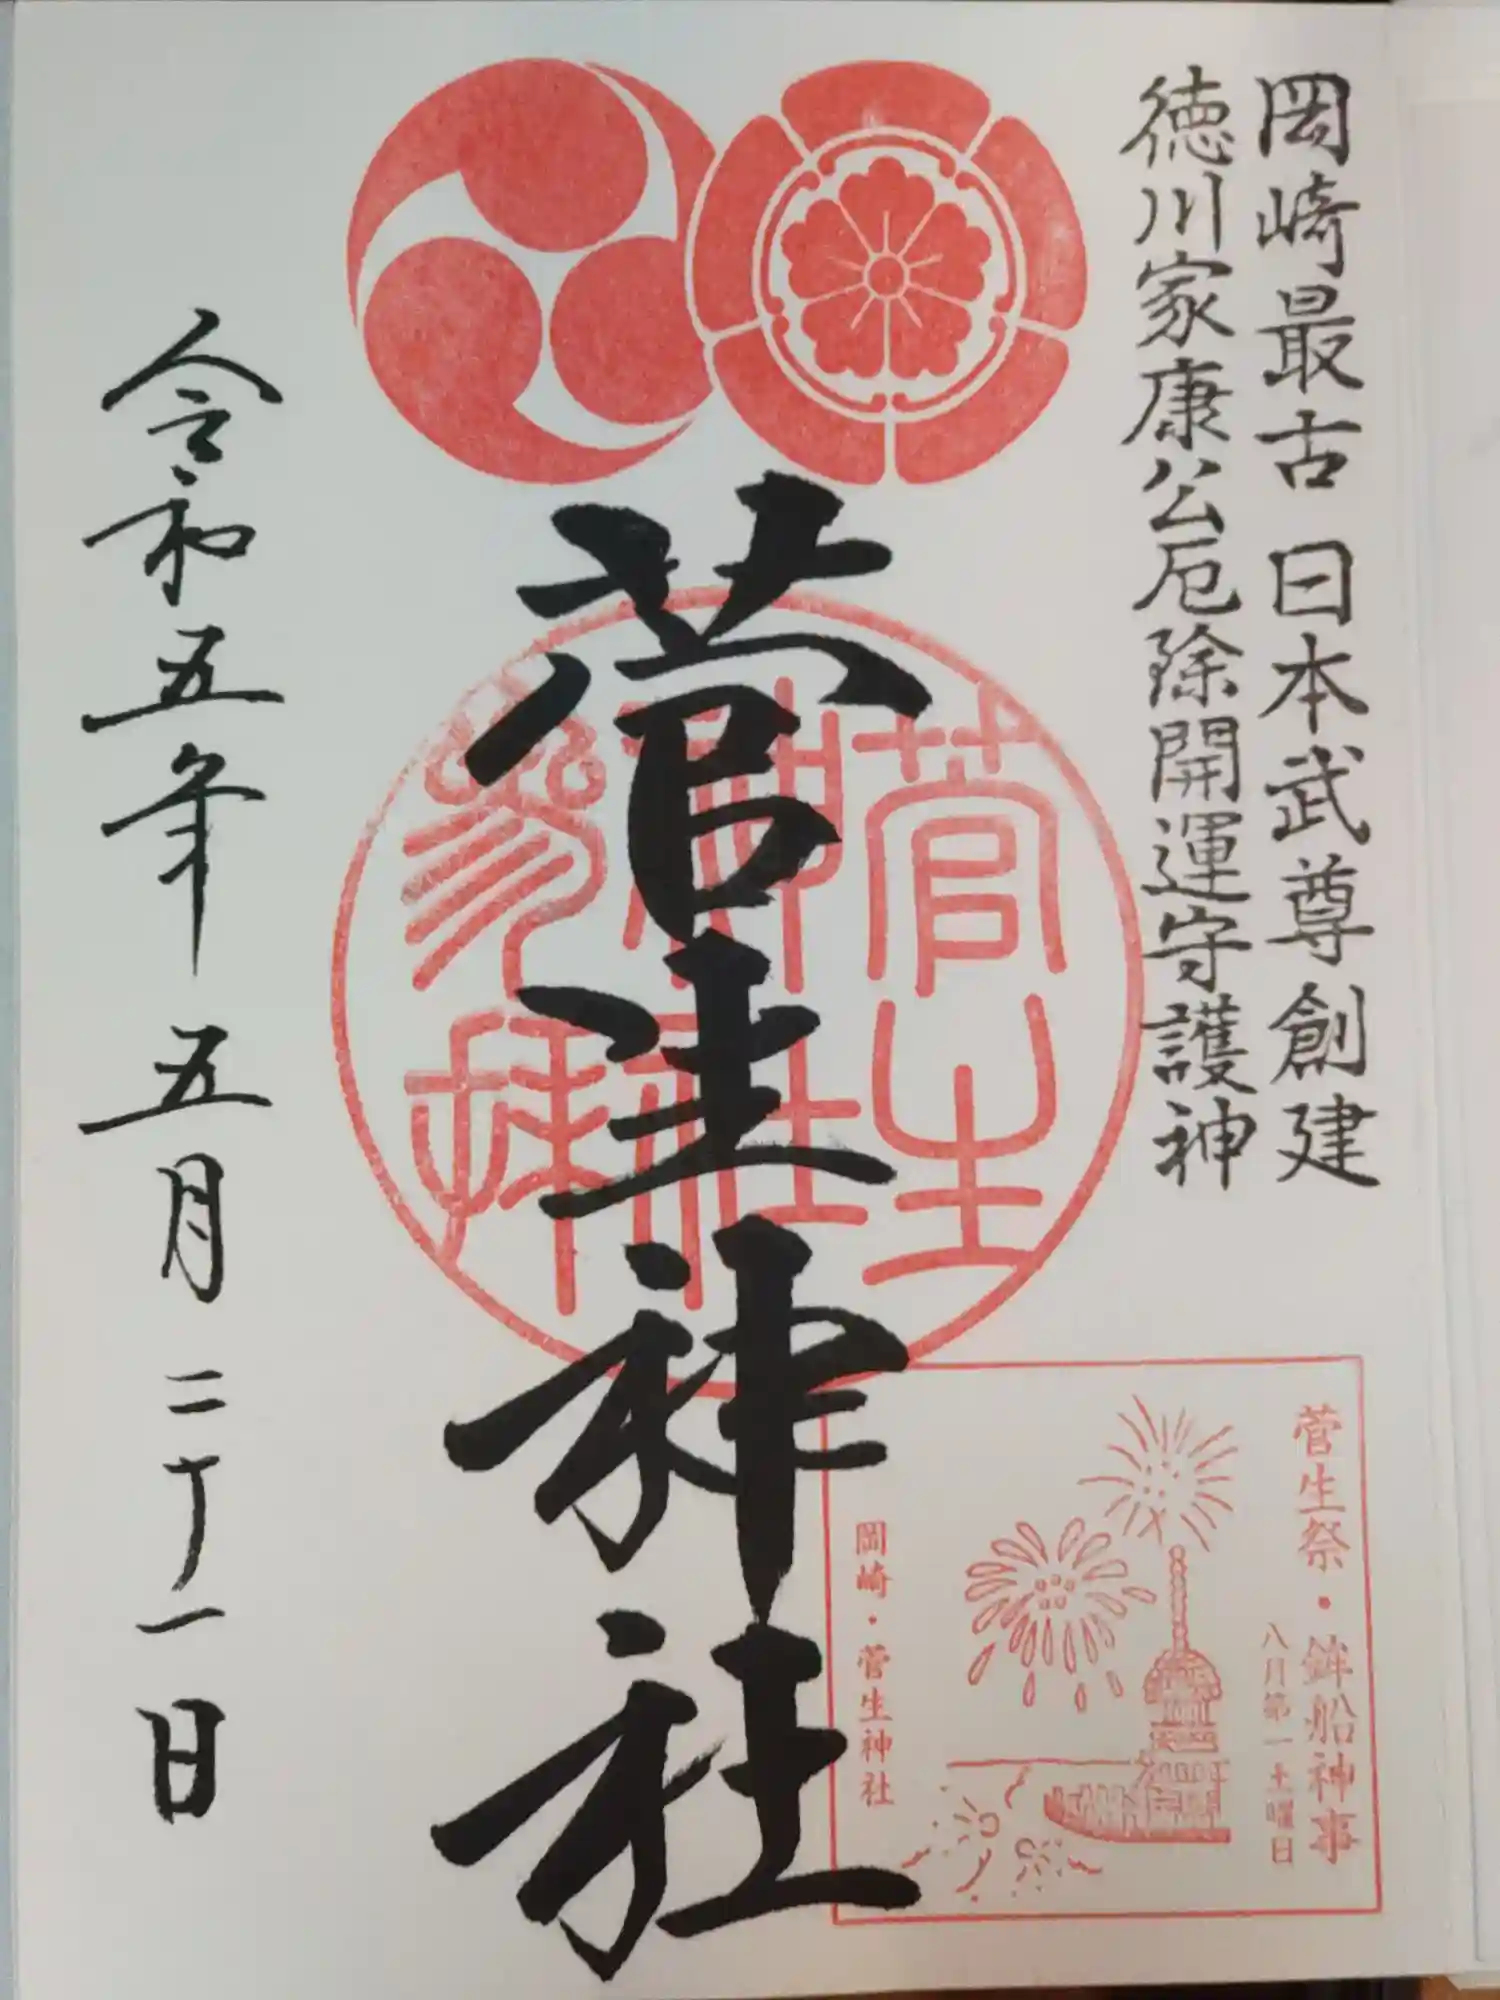 岡崎最古 日本武尊創建
徳川家康公厄除開運守護神
菅生神社
菅生
神社
参拝
菅生祭・鉾船神事
八月第一土曜日
岡崎・菅生神社
令和五年 五月 二十一日